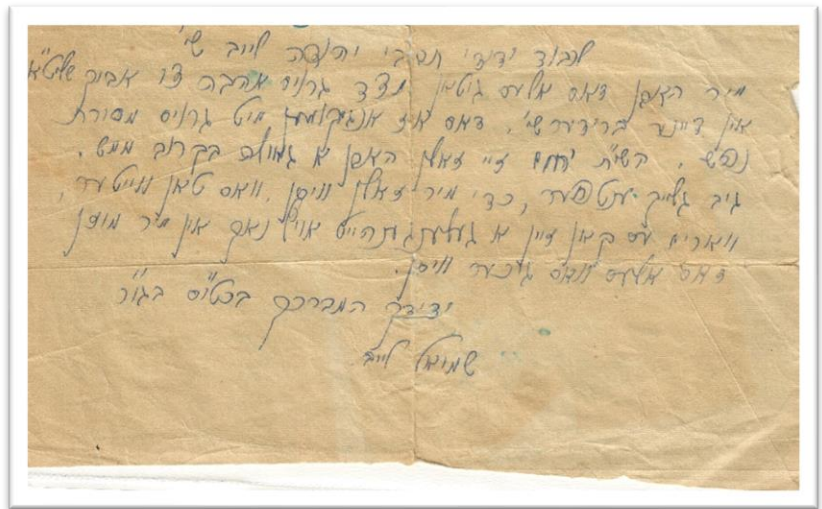 לכבוד ידידי חביבי יהודה לייב שי'
מיר האבן דאס אלעס געטאן מצד גרויס אהבה צו אביך שליט"א
און דיינע ברידער שי'. דאס איז אנגעקומען מיט גרויס מסירת
נפש. השי"ת זאלן האבן א גאולה בקרוב ממש.
גיב גלייך ענטפער, כדי מיר זאלן וויסן, וואס טאן ווייטער,
ווארים עס קאן זיין א געלעגנהייט אויף נאך און מיר מוזן
דאס אלעס וואס גיכער וויסן.
ידידך המברכך בכט"ס בגו"ר
שמואל לייב